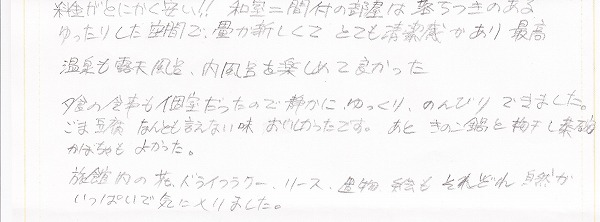 料金がとにかく安い!! 和室二間付の部屋は落ちつきのある
ゆったりした空間で、畳が新しくて とても清潔感があり 最高
温泉も露天風呂、内風呂も楽しめて良かった
夕食の食事も個室だったので静かに、ゆっくり、のんびり できました。
ごま豆腐 なんとも言えない味 おいしかったです。 あと きのこ鍋と梅干し茶碗
かぼちゃも よかった。
旅館内の花、ドライフラワー、リース、置物 絵も それぞれ 自然が
いっぱいで気に入りました。